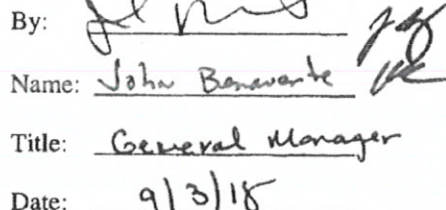 By:
Name: John Benavente
Title: General Manager
Date: 9/3/15